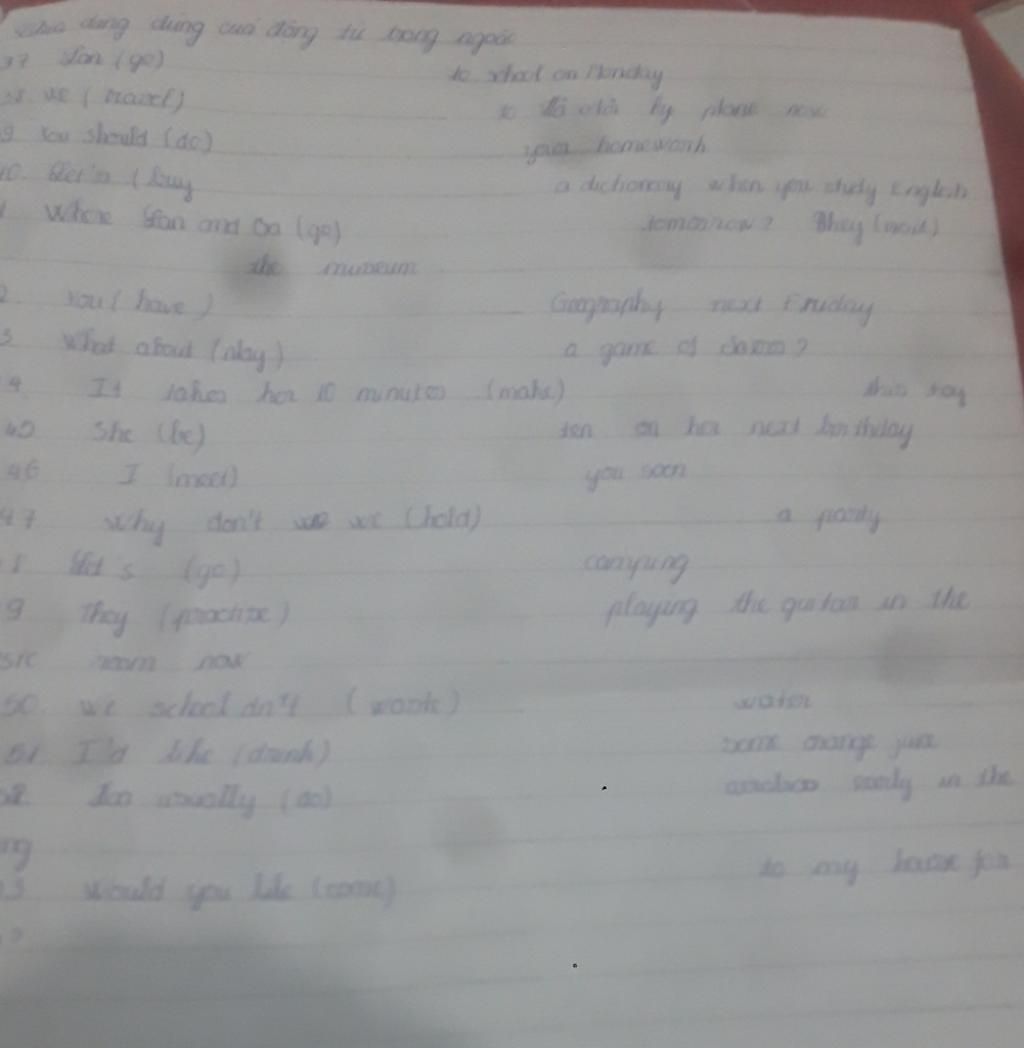 dạng đúng của động từ trong ngoặc
37 Lan (go) to school on Monday
38 We (travel) to by plane now
9 You should (do) your homework
40. Let's (buy a dictionary when you study English
1 Where Lan and Ba (go) tomorrow? They (visit)
the museum
2. You (have) Geography next Friday
3 What about (play) a game of ?
4. It takes her 10 minutes (make) this toy
45 She (be) ten on her next birthday
46 I (meet) you soon
47 Why don't we we (hold) a party
8 Let's (go) camping
9 They (practise) playing the guitar in the
sic room now
50. We (waste) water
51 I'd like (drink) some orange juice
52 Lan usually (do) early in the
ng
3 Would you like (come) to my house for
?